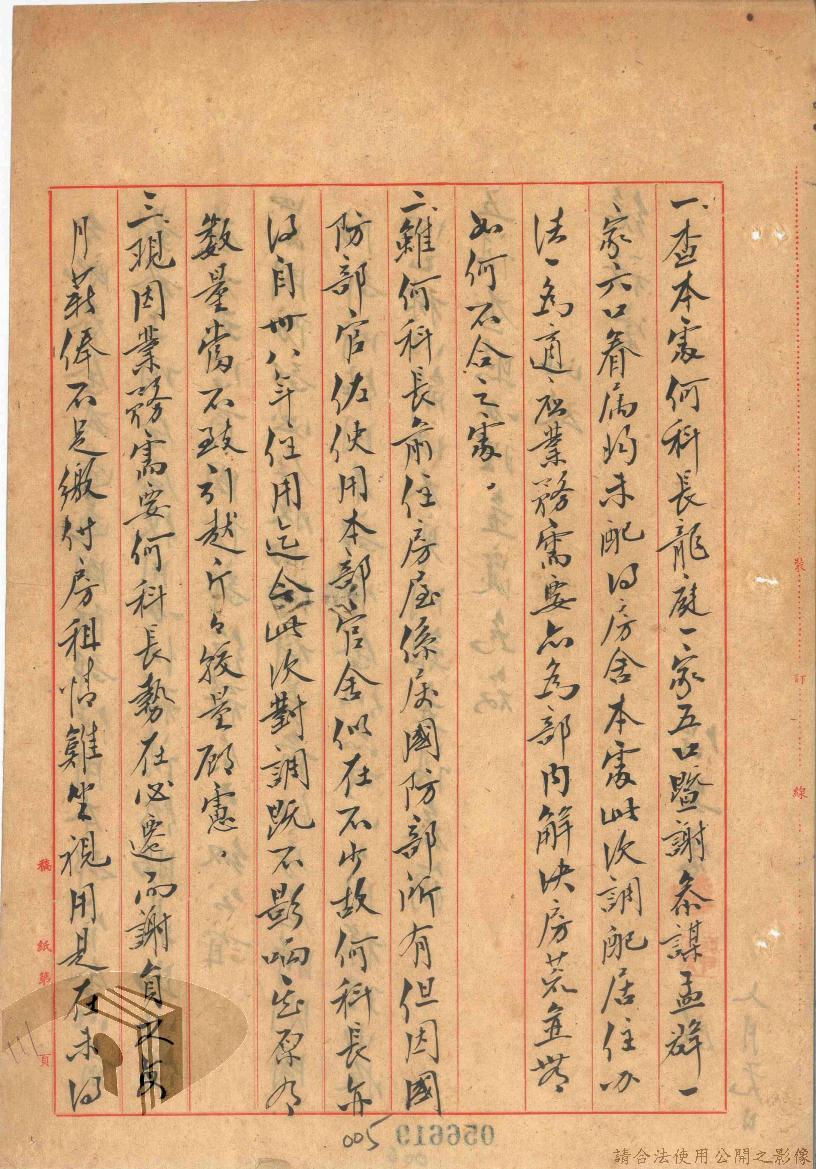 一、查本處何科長龍庭一家五口暨謝參謀孟辟一
家六口眷屬均未配得房舍本處此次調配居住办
法一為適应業務需要亦為部內解決房荒並無
如何不合之處。
二、雖何科長前住房屋係屬國防部所有但因國
防部官佐使用本部官舍似在不少故何科長弃
得自卅八年住用迄今此次對調既不影响其原有
數量當不致引越斤斤較量顧慮。
三、現因業務需要何科長勢在必遷而謝員
月薪俸不足繳付房租情難坐視用是在未得
裝 訂 線
稿 紙 第 頁
005
056619
請合法使用公開之影像